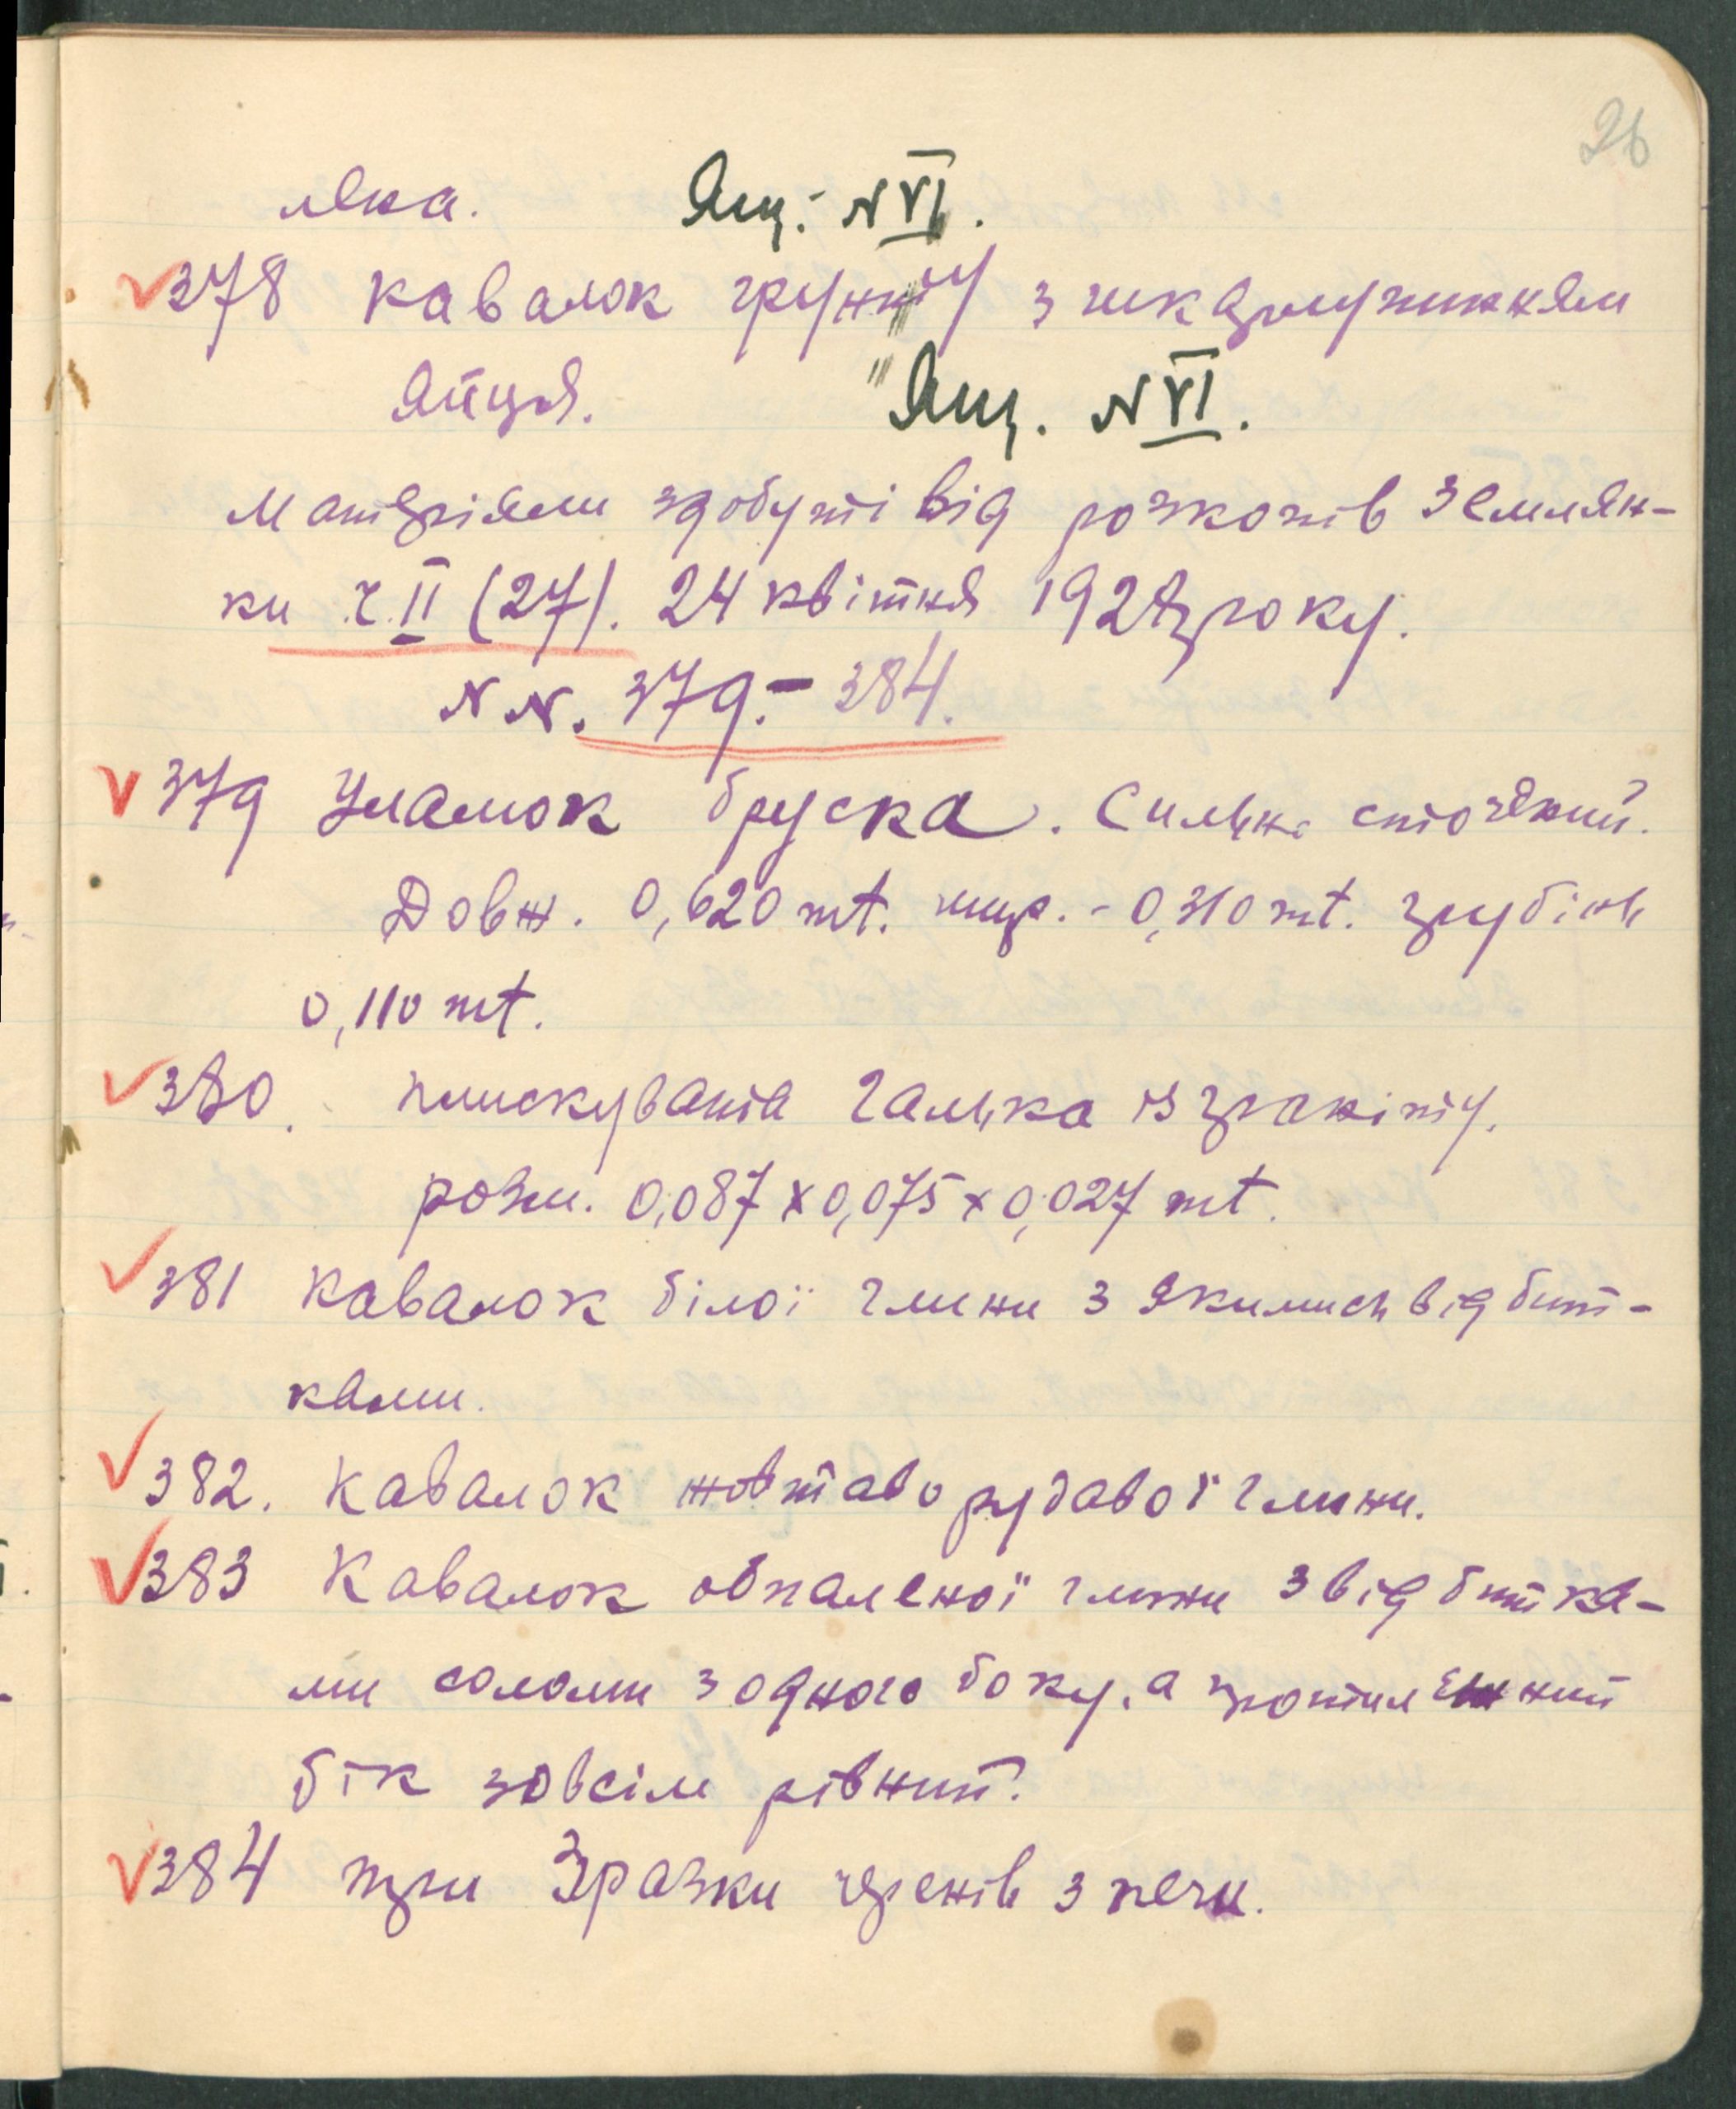 26
лека. Ящ. N VI.
378 Кавалок ґрунту з шкаралупинням
яйця. "Ящ. N VI.
Матеріяли здобуті від розкопів Землян-
ки ч. II (27). 24 квітня 1928 року.
NN. 379.- 384.
379 Уламок бруска. Сильно сточений.
Довж. 0,620 mt. шир. - 0,310 mt. грубінь
0,110 mt.
380. плискувата галька із граніту.
розм. 0,087 x 0,075 x 0,027 mt.
381 Кавалок білої глини з якимись відбит-
ками.
382. Кавалок жовтаво рудавої глини.
383 Кавалок обпаленої глини з відбитка-
ми соломи з одного боку, а протилежний
бік зовсім рівний.
384 три Зразки черенів з печи.